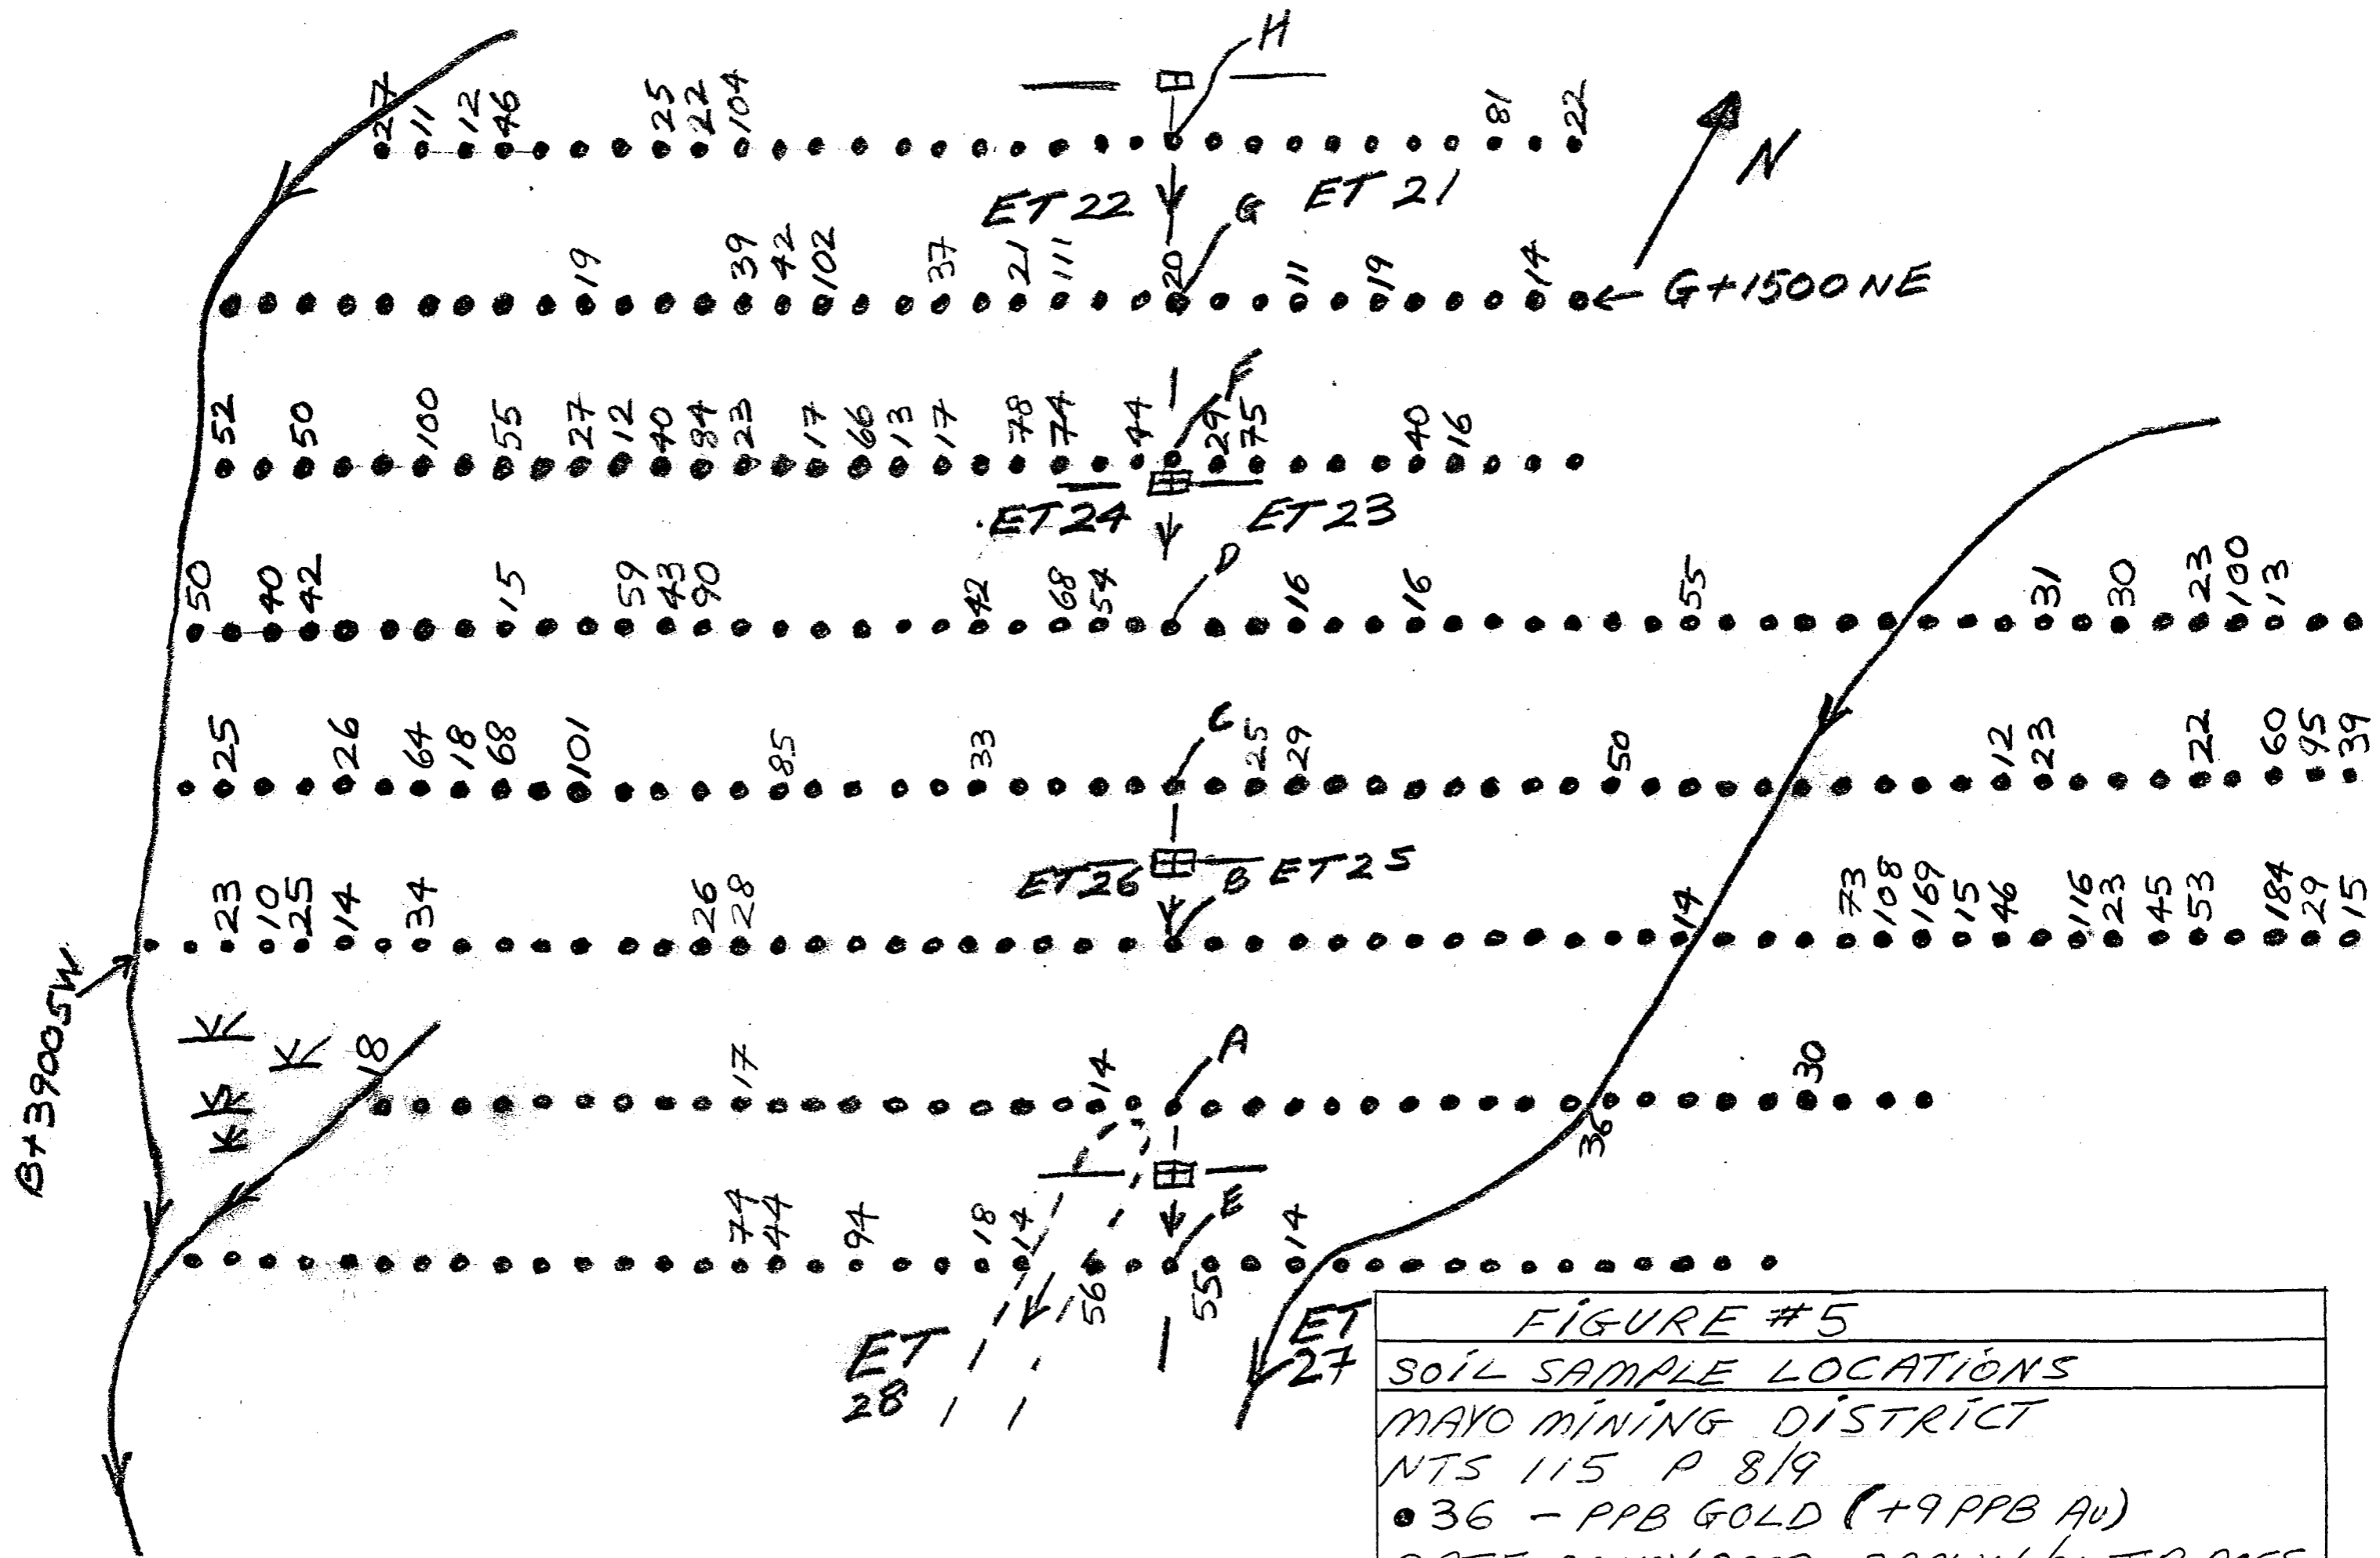 H
27 11 12 46 25 22 104 81 22
N
ET 22 ET 21
G
19 39 42 102 37 21 111 20 11 19 14
G+1500NE
F
52 50 100 55 27 12 40 84 23 17 66 13 17 78 74 44 29 75 40 16
ET 24 ET 23
D
50 40 42 15 59 43 90 42 68 54 16 16 55 31 30 23 100 13
C
25 26 64 18 68 101 85 33 25 29 50 12 23 22 60 95 39
ET 26 B ET 25
23 10 25 14 34 26 28 14 73 108 169 15 46 116 23 45 53 184 29 15
B+3900SW
A
18 17 14 30
36
E
74 44 94 18 14 14
56 55
ET
28
ET
27
FIGURE #5
SOIL SAMPLE LOCATIONS
MAYO MINING DISTRICT
NTS 115 P 8/9
36 - PPB GOLD (+9 PPB Au)